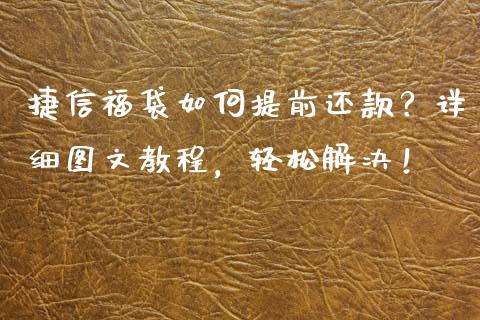 捷信福袋如何提前还款？详
细图文教程，轻松解决！